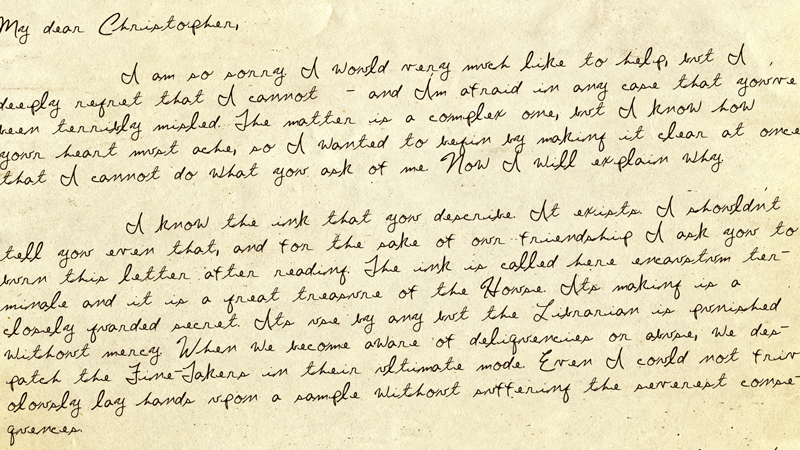 My dear Christopher,
I am so sorry I would very much like to help, but I
deeply regret that I cannot - and I'm afraid in any case that you've
been terribly misled. The matter is a complex one, but I know how
your heart must ache, so I wanted to begin by making it clear at once
that I cannot do what you ask of me Now I will explain why
I know the ink that you describe. It exists. I shouldn't
tell you even that, and for the sake of our friendship I ask you to
burn this letter after reading. The ink is called here encaustum ter-
minale and it is a great treasure of the House. Its making is a
closely guarded secret. Its use by any but the Librarian is punished
without mercy When we become aware of deliqvencies or abuse, we des-
patch the Fine-Takers in their ultimate mode Even I could not friv-
olously lay hands upon a sample without suffering the severest conse-
quences.